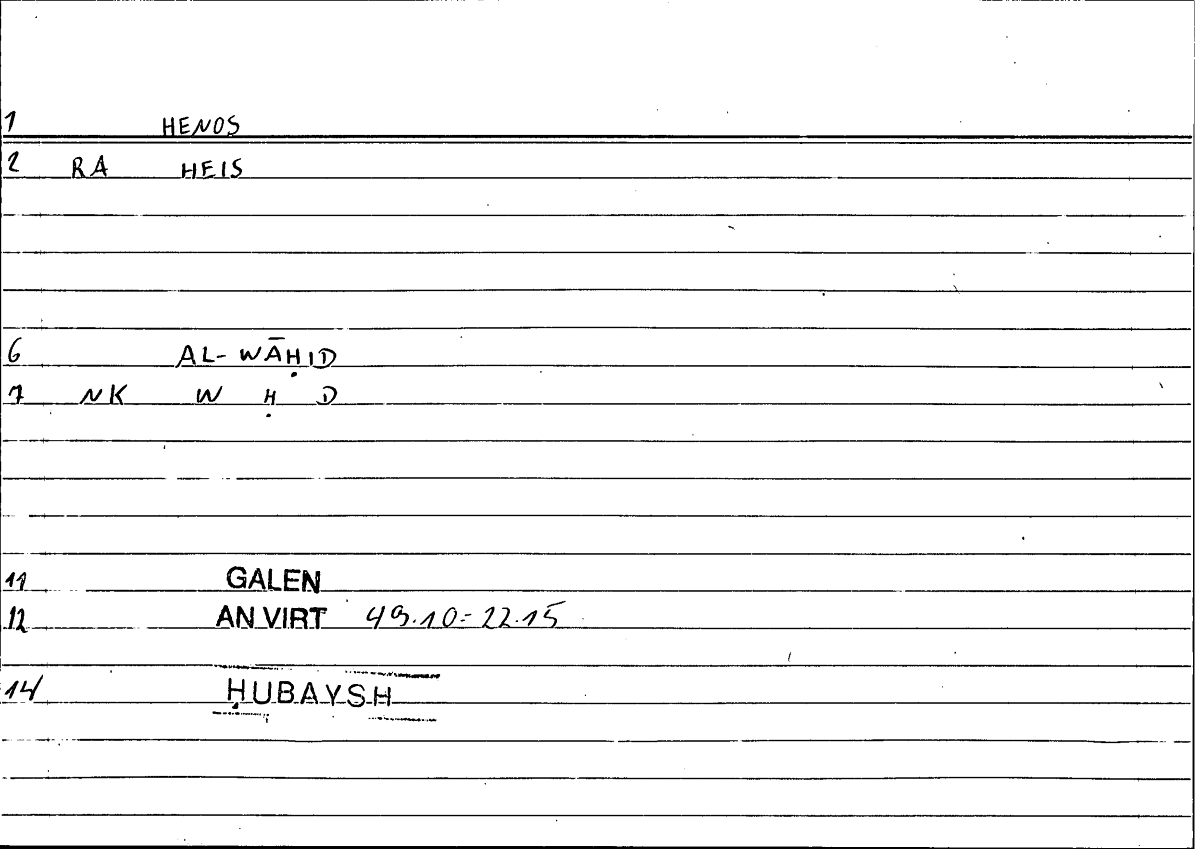 1 HENOS
2 RA HEIS
6 AL-WĀḤID
7 NK W Ḥ D
11 GALEN
12 AN VIRT 49.10=22.15
14 ḤUBAYSH